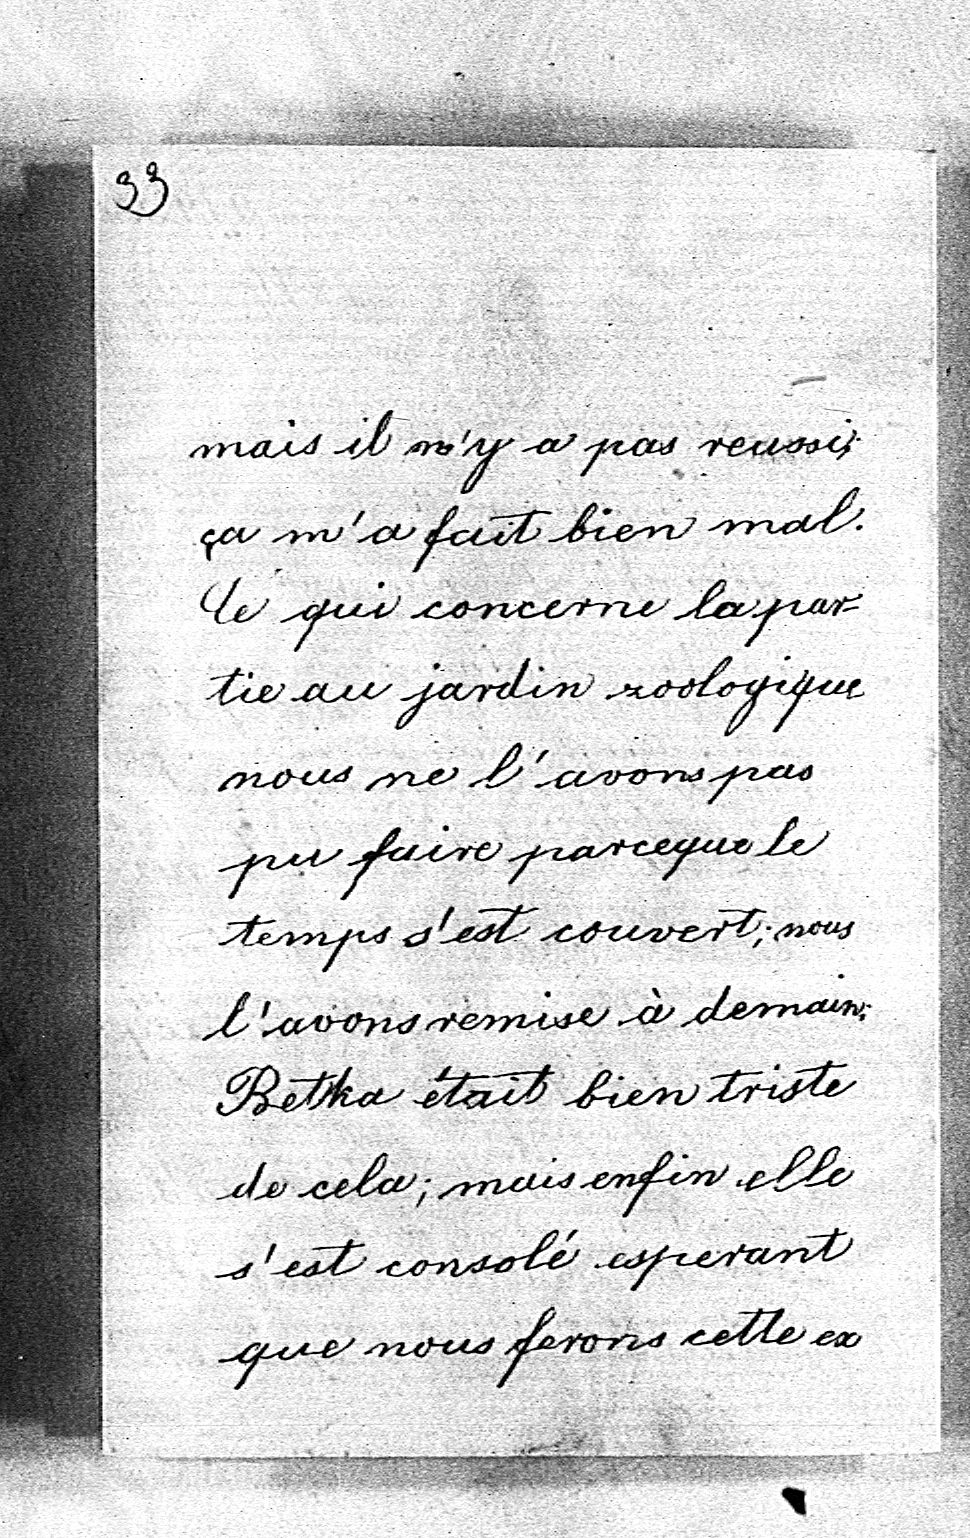 33
mais il n'y a pas reussi;
ça m'a fait bien mal.
Ce qui concerne la par-
tie au jardin zoologique
nous ne l'avons pas
pu faire parceque le
temps s'est couvert; nous
l'avons remise à demain;
Betka était bien triste
de cela; mais enfin elle
s'est consolé esperant
que nous ferons cette ex